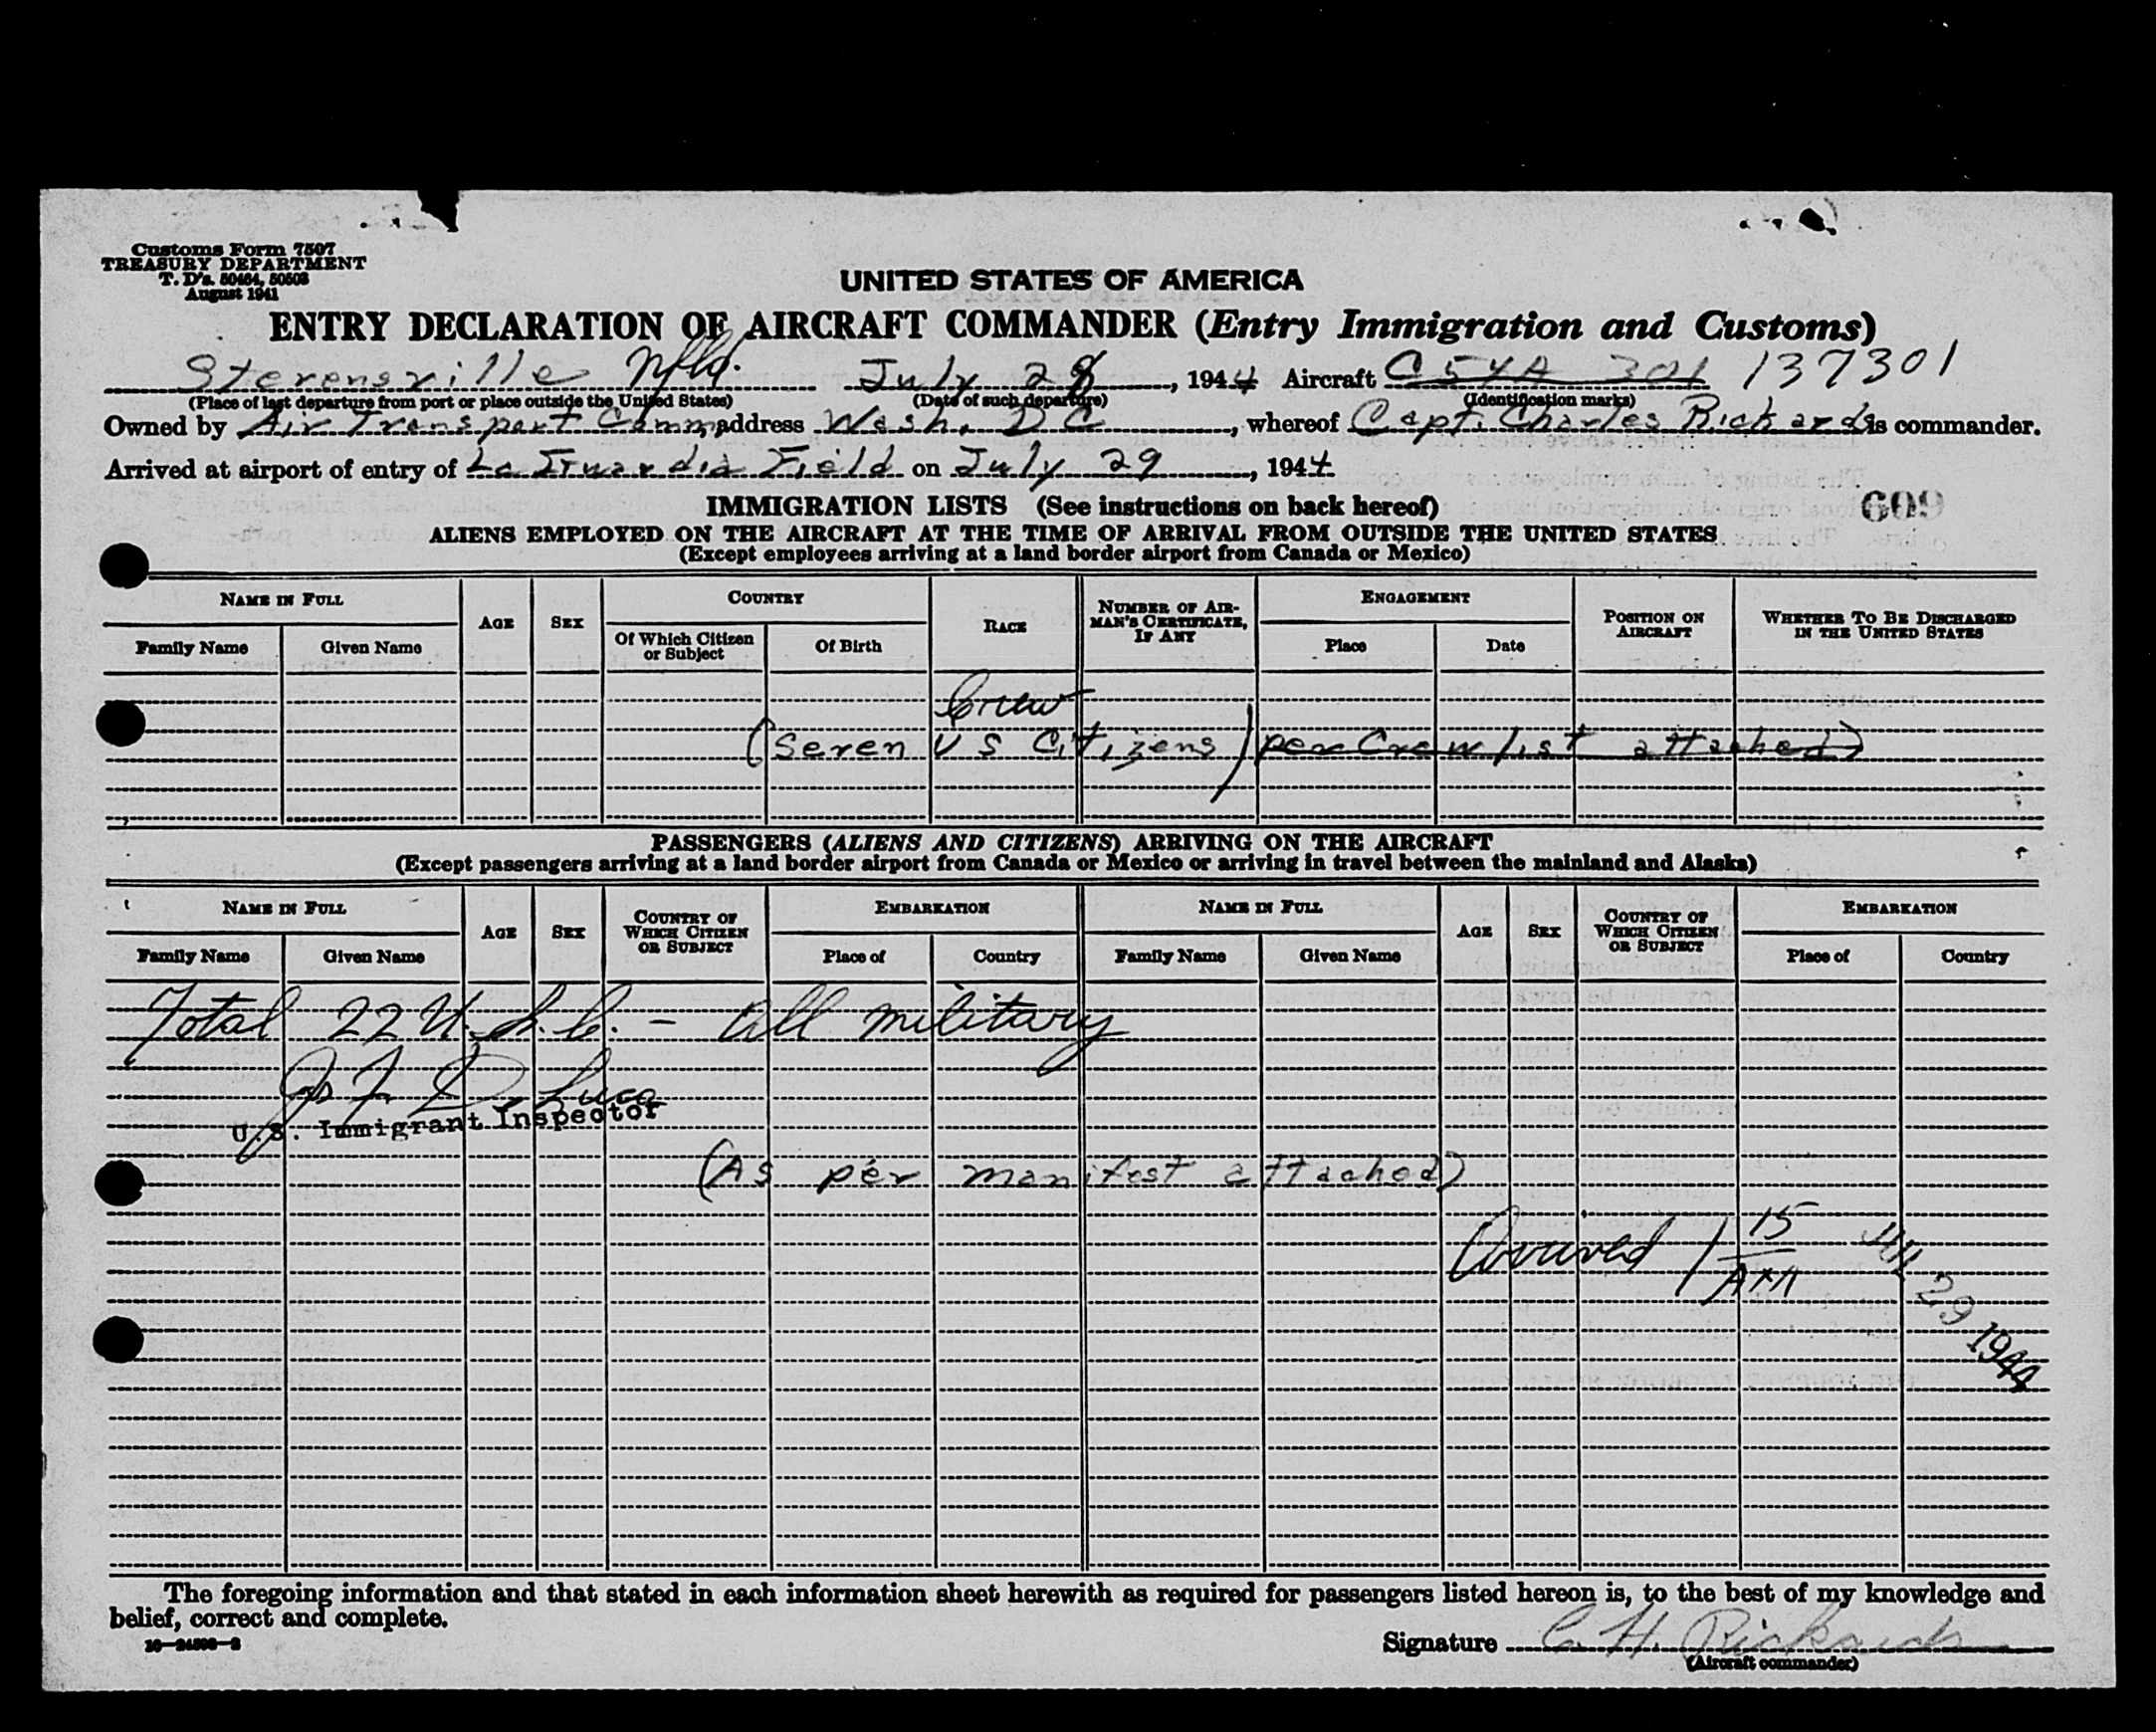 Customs Form 7507
TREASURY DEPARTMENT
T. D's. 50464, 50503
August 1941
UNITED STATES OF AMERICA
ENTRY DECLARATION OF AIRCRAFT COMMANDER (Entry Immigration and Customs)
Stevensville Nfld. July 28, 1944 Aircraft C54A 301 137301
(Place of last departure from port or place outside the United States) (Date of such departure) (Identification marks)
Owned by Air Transport Comm, address Wash, DC, whereof Capt. Charles Rickards is commander.
Arrived at airport of entry of La Guardia Field on July 29, 1944
609
IMMIGRATION LISTS (See instructions on back hereof)
ALIENS EMPLOYED ON THE AIRCRAFT AT THE TIME OF ARRIVAL FROM OUTSIDE THE UNITED STATES
(Except employees arriving at a land border airport from Canada or Mexico)
NAME IN FULL AGE SEX COUNTRY RACE NUMBER OF AIRMAN'S CERTIFICATE, IF ANY ENGAGEMENT POSITION ON AIRCRAFT WHETHER TO BE DISCHARGED IN THE UNITED STATES
Family Name Given Name Of Which Citizen or Subject Of Birth Place Date
Crew
(Seven U S Citizens) per Crew list attached)
PASSENGERS (ALIENS AND CITIZENS) ARRIVING ON THE AIRCRAFT
(Except passengers arriving at a land border airport from Canada or Mexico or arriving in travel between the mainland and Alaska)
NAME IN FULL AGE SEX COUNTRY OF WHICH CITIZEN OR SUBJECT EMBARKATION NAME IN FULL AGE SEX COUNTRY OF WHICH CITIZEN OR SUBJECT EMBARKATION
Family Name Given Name Place of Country Family Name Given Name Place of Country
Total 22 U.S.C. - All military
J. F. De Luca
U.S. Immigrant Inspector
(As per manifest attached)
Arrived 1 15 AM JUL 29 1944
The foregoing information and that stated in each information sheet herewith as required for passengers listed hereon is, to the best of my knowledge and
belief, correct and complete.
Signature C. H. Rickards
(Aircraft commander)